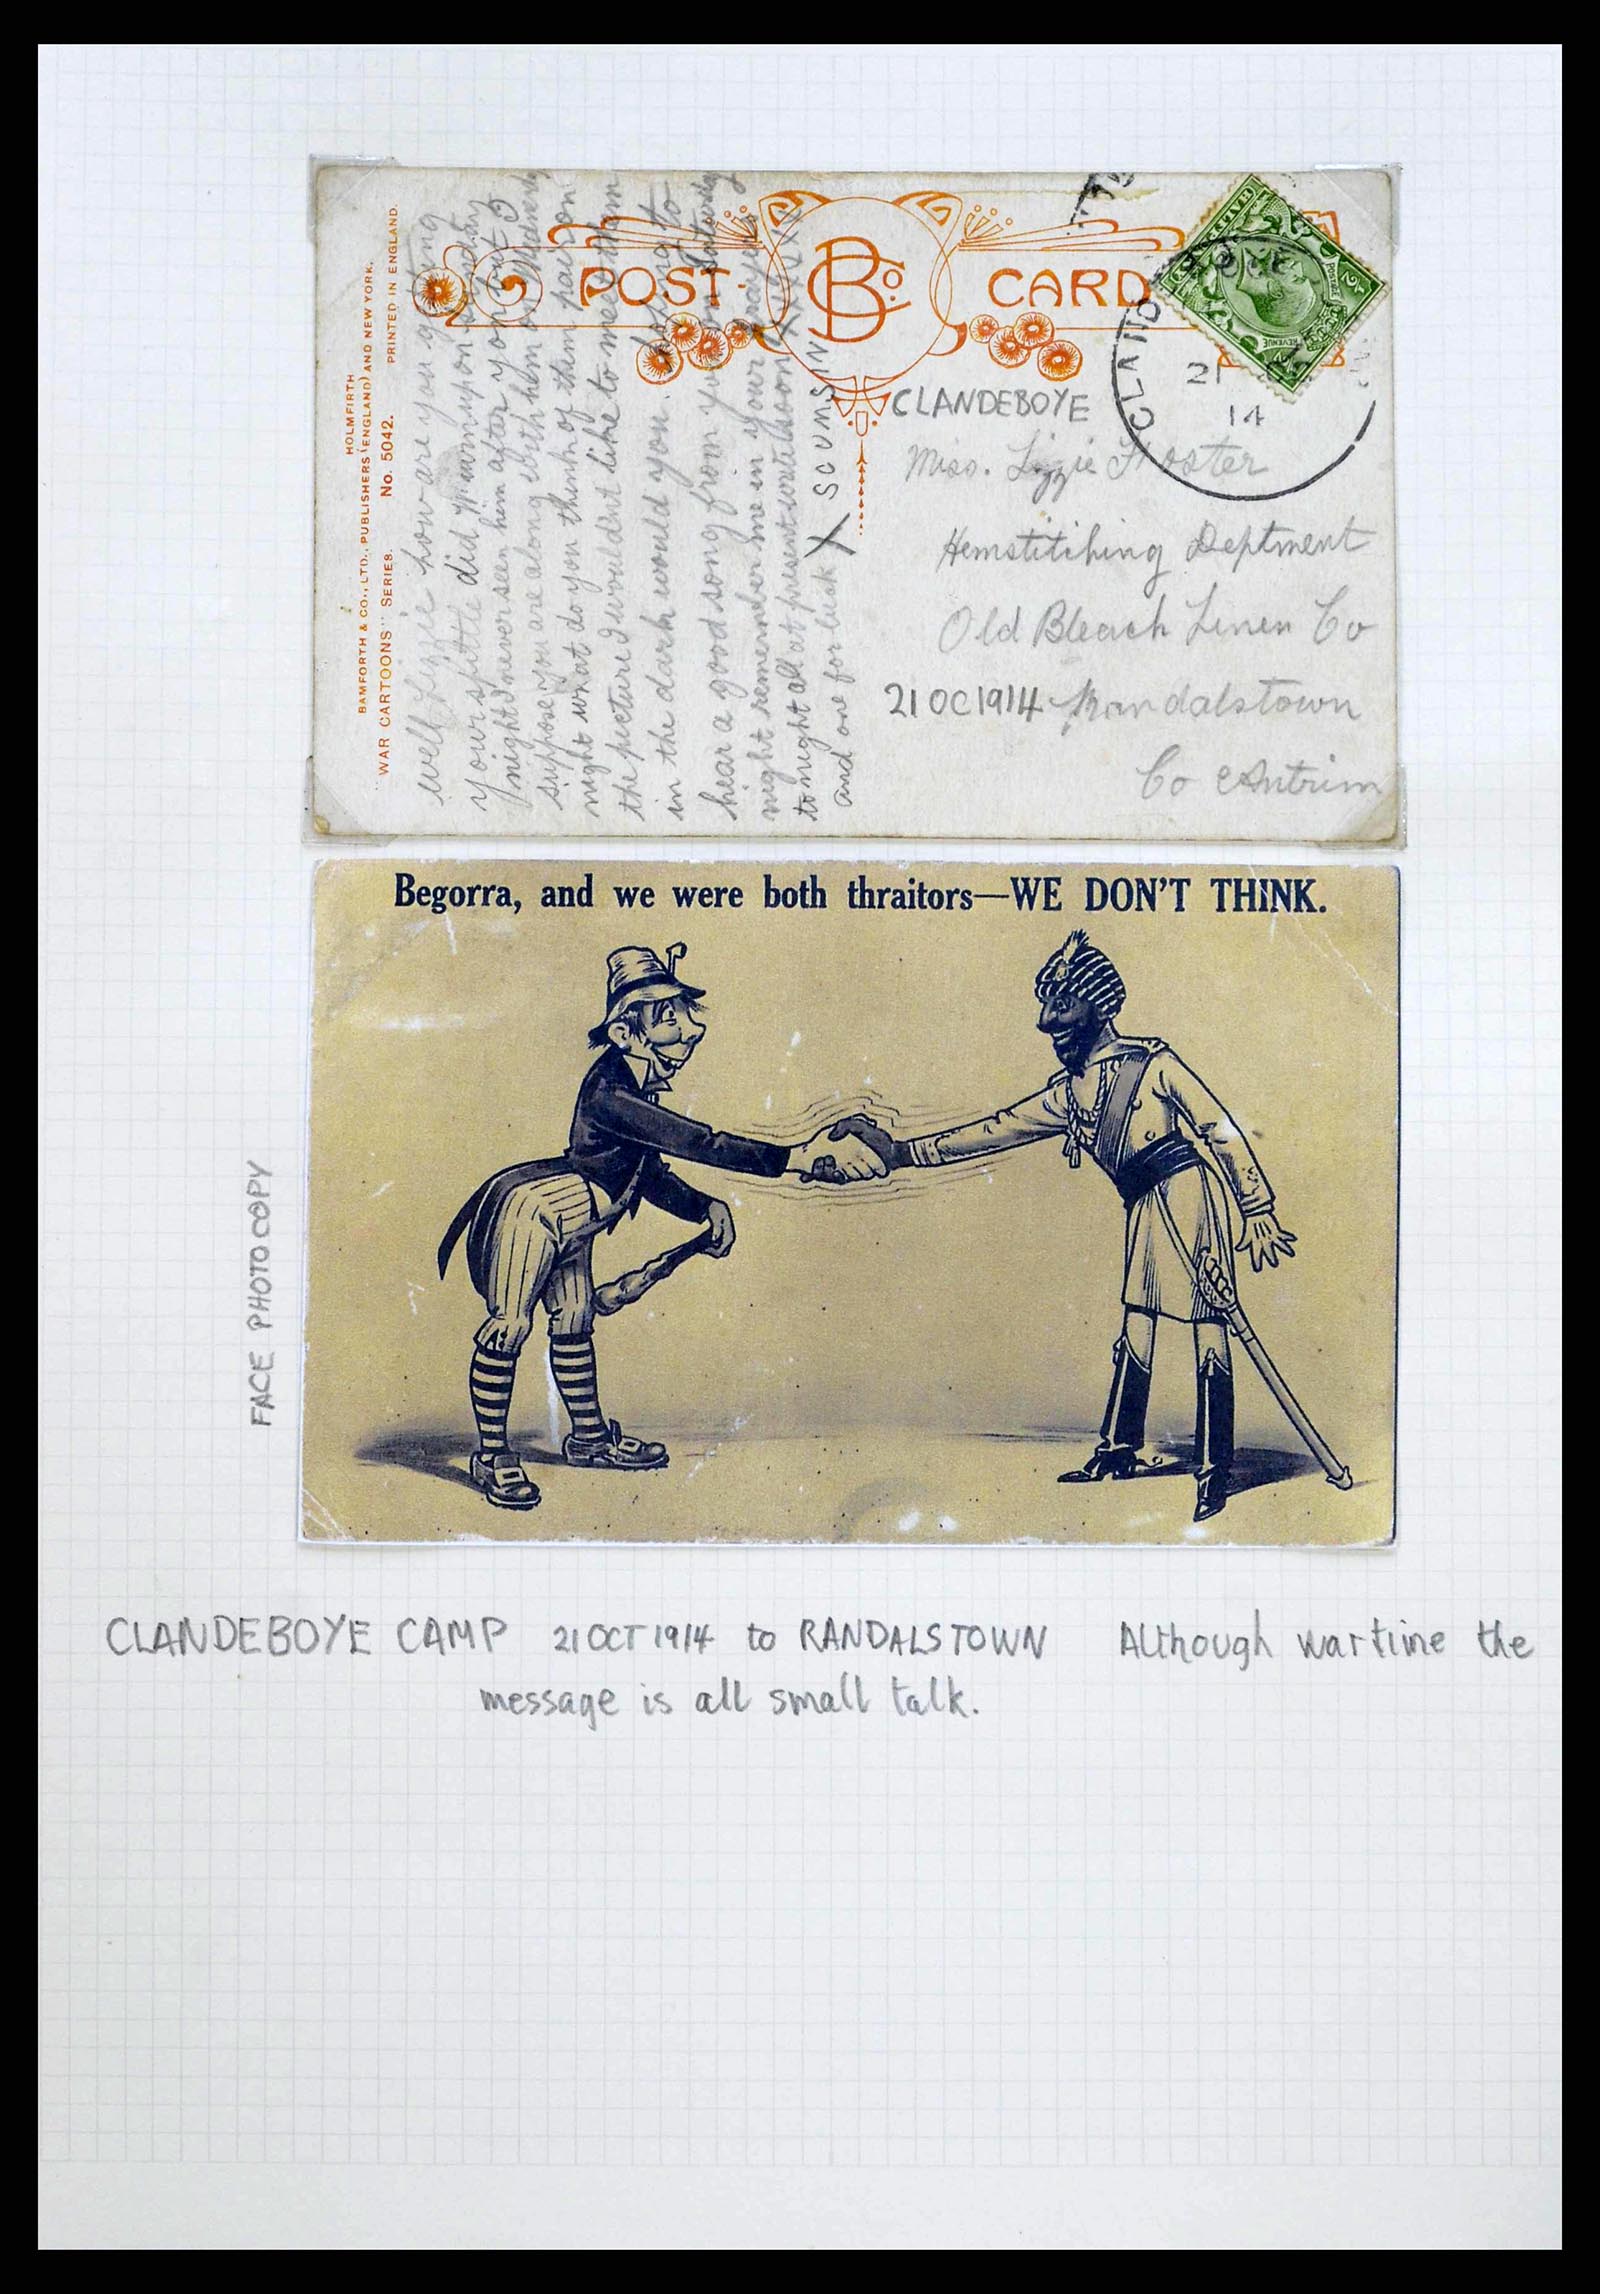 HOLMFIRTH
BAMFORTH & CO., LTD., PUBLISHERS (ENGLAND) AND NEW YORK.
"WAR CARTOONS" SERIES. No. 5042. PRINTED IN ENGLAND.
POST CARD
B Co.
well Lizzie how are you getting
your did you on
night I never seen him after you out I
suppose you are along with him on
night what do you think of them pair on
the picture I wouldnt like to meet them
in the dark would you. hoping to
hear a good song from you on Saturday
night remember me in your prayers
to night all at present write soon XXXXXX
and one for luck X SCUMSIN
CLAND
OC
21
14
POSTAGE
REVENUE
CLANDEBOYE
Miss. Lizzie Foster
Hemstitching Deptment
Old Bleach Linen Co
21 OC 1914 Randalstown
Co Antrim
Begorra, and we were both thraitors—WE DON'T THINK.
FACE PHOTOCOPY
CLANDEBOYE CAMP 21 OCT 1914 to RANDALSTOWN Although wartime the
message is all small talk.